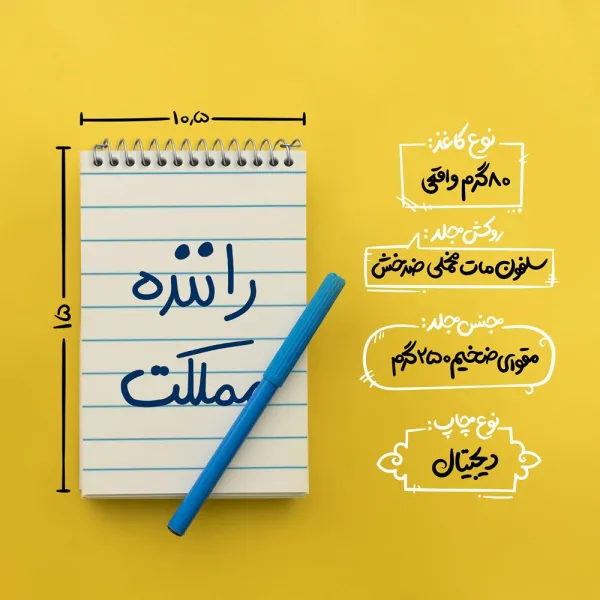 ۱۰,۵
۱۵
راننده
مملکت
نوع کاغذ:
۸۰ گرم واقعی
روکش جلد:
سلفون مات مخملی ضدخش
جنس جلد:
مقوای ضخیم ۲۵۰ گرم
نوع چاپ:
دیجیتال